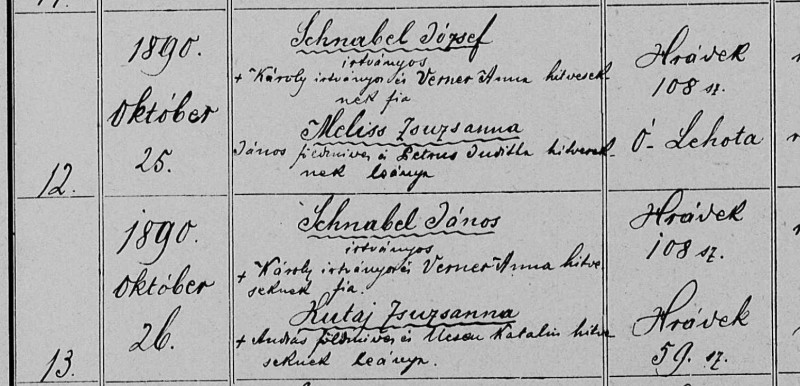 12.
1890.
Október
25.
Schnabel József
irtványos
+ Károly irtványos és Verner Anna hitvesék-
nek fia
Meliss Zsuzsanna
János földmives és Petrus Juditha hitvesek-
nek leánya
Hrávek
108 sz.
Ó-Lehota
13.
1890.
Október
26.
Schnabel János
irtványos
+ Károly irtványos és Verner Anna hitve-
seknek fia.
Kutaj Zsuzsanna
+ András földmives és Katalin hitve
seknek leánya.
Hrávek
108 sz.
Hrávek
59. sz.